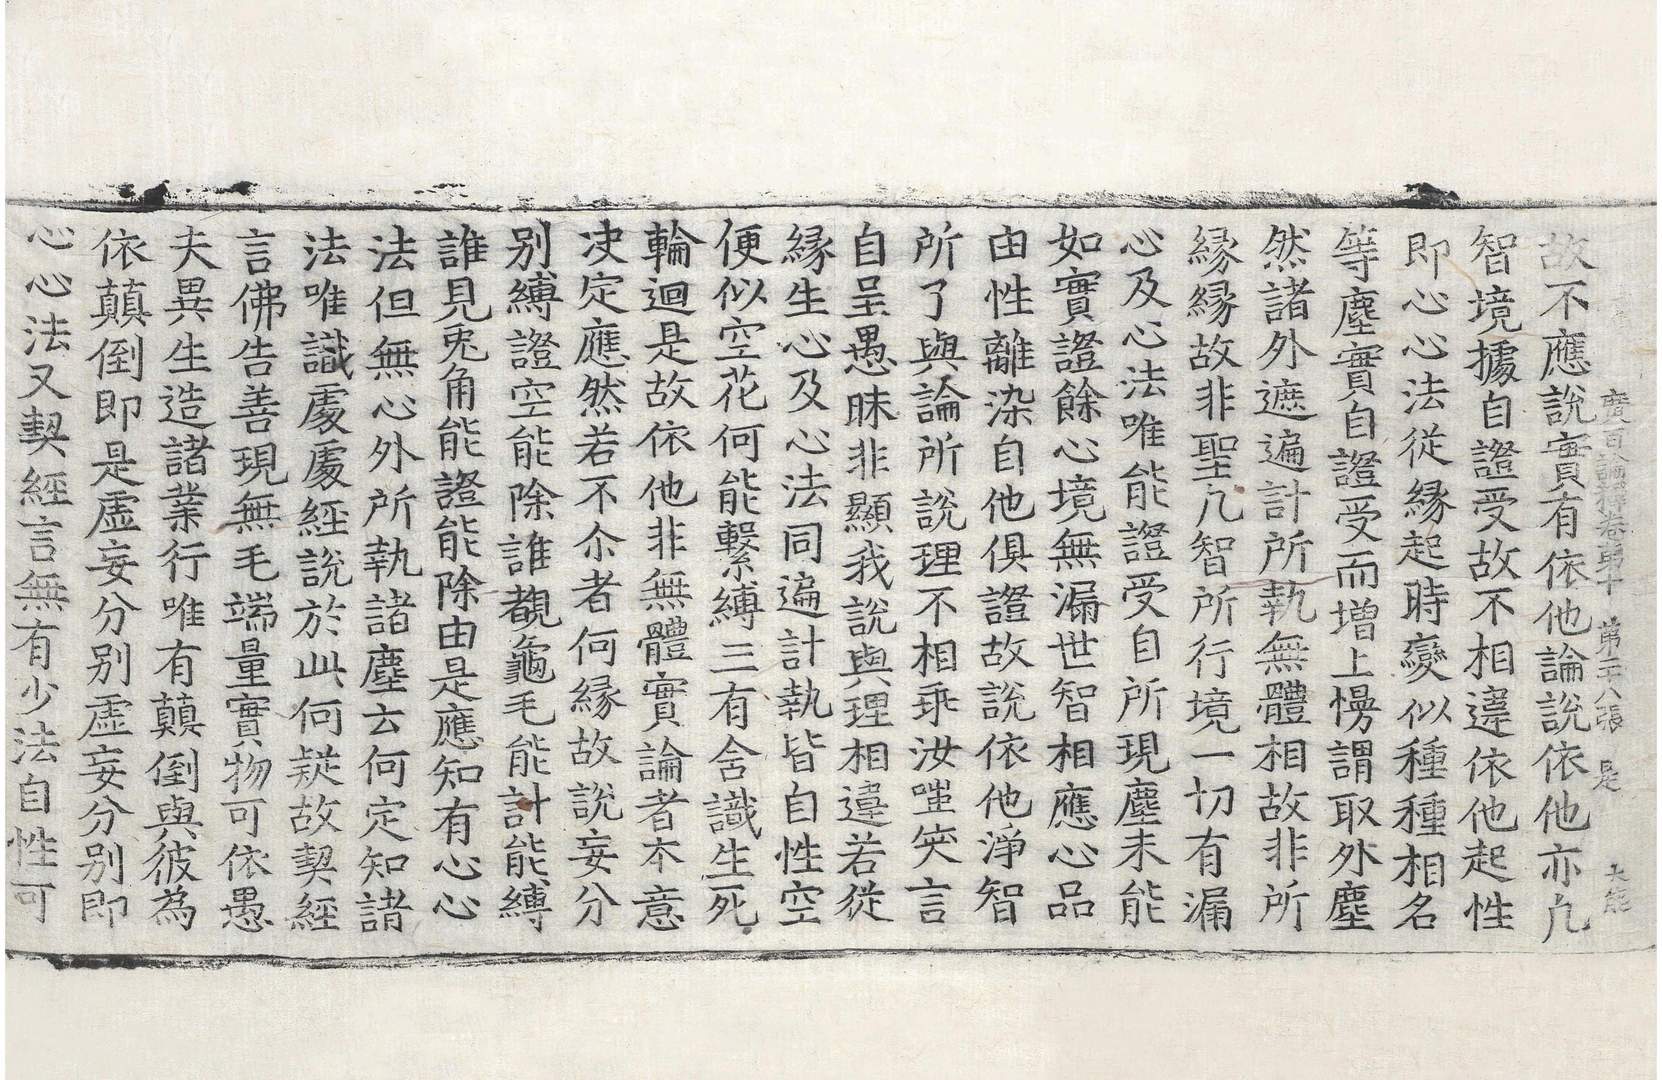 廣百論釋卷第十 第二十八張 是 大能
故不應說實有依他論說依他亦凢
智境據自證受故不相違依他起性
即心心法從緣起時變似種種相名
等塵實自證受而增上慢謂取外塵
然諸外遮遍計所執無體相故非所
緣緣故非聖凢智所行境一切有漏
心及心法唯能證受自所現塵未能
如實證餘心境無漏世智相應心品
由性離染自他俱證故說依他淨智
所了與論所說理不相乖汝嗤笑言
自呈愚昧非顯我說與理相違若從
緣生心及心法同遍計執皆自性空
便似空花何能繫縛三有含識生死
輪迴是故依他非無體實論者本意
决定應然若不尒者何緣故說妄分
別縛證空能除誰覩龜毛能計能縛
誰見兎角能證能除由是應知有心心
法但無心外所執諸塵云何定知諸
法唯識處處經說於此何疑故契經
言佛告善現無毛端量實物可依愚
夫異生造諸業行唯有顛倒與彼為
依顛倒即是虛妄分別虛妄分別即
心心法又契經言無有少法自性可